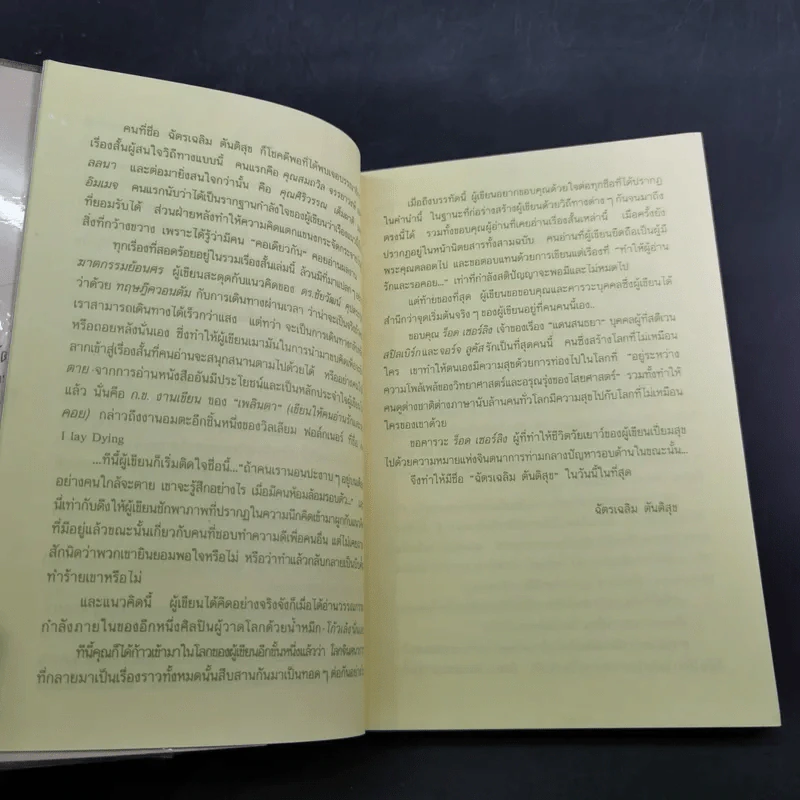 คนที่ชื่อ ฉัตรเฉลิม ตันติสุข ก็โชคดีพอที่ได้พบเจอบรรณา
เรื่องสั้นผู้สนใจวิถีทางแบบนี้ คนแรกคือ คุณสมถวิล
ลลนา และต่อมายิ่งสนใจกว่านั้น คือ คุณศิริวรรณ
อิมเมจ คนแรกนับว่าได้เป็นรากฐานกำลังใจของผู้เขียนว่าเรื่อง
ที่ยอมรับได้ ส่วนฝ่ายหลังทำให้ความคิดแตกแขนงกระจัดกระจาย
สิ่งที่กว้างขวาง เพราะได้รู้ว่ามีคน "คอเดียวกัน" คอยอ่านผลงาน
ทุกเรื่องที่สอดร้อยอยู่ในรวมเรื่องสั้นเล่มนี้ ล้วนมีที่มาแปลกๆ
ฆาตกรรมย้อนศร ผู้เขียนสะดุดกับแนวคิดของ ดร.ชัยวัฒน์
ว่าด้วย ทฤษฎีควอนตัม กับการเดินทางผ่านเวลา ว่าน่าจะเป็นจริง
เราสามารถเดินทางได้เร็วกว่าแสง แต่ทว่า จะเป็นการเดินทาง
หรือถอยหลังนั่นเอง ซึ่งทำให้ผู้เขียนเมามันในการนำมาขบคิด
ลากเข้าสู่เรื่องสั้นที่คนอ่านจะสนุกสนานตามไปด้วยได้ หรืออย่าง
ตาย จากการอ่านหนังสืออันมีประโยชน์และเป็นหลักประจำใจ
แล้ว นั่นคือ ก.ข. งานเขียน ของ "เพลินตา" (เขียนให้คนอ่านรักและ
คอย) กล่าวถึงงานอมตะอีกชิ้นหนึ่งของวิลเลียม ฟอล์กเนอร์ ที่ชื่อ
I lay Dying
...ทีนี้ผู้เขียนก็เริ่มติดใจชื่อนี้..."ถ้าคนเรานอนปะงาบๆอยู่บน
อย่างคนใกล้จะตาย เขาจะรู้สึกอย่างไร เมื่อมีคนห้อมล้อมรอบตัว.."
นี่เท่ากับดึงให้ผู้เขียนชักพาภาพที่ปรากฏในความนึกคิดเข้ามาผูกกัน
ที่มีอยู่แล้วขณะนั้นเกี่ยวกับคนที่ชอบทำความดีเพื่อคนอื่น แต่ไม่
สักนิดว่าพวกเขายินยอมพอใจหรือไม่ หรือว่าทำแล้วกลับกลายเป็น
ทำร้ายเขาหรือไม่
และแนวคิดนี้ ผู้เขียนได้คิดอย่างจริงจังก็เมื่อได้อ่านวรรณกรรม
กำลังภายในของอีกหนึ่งศิลปินผู้วาดโลกด้วยน้ำหมึก-โก้วเล้ง
ทีนี้คุณก็ได้ก้าวเข้ามาในโลกของผู้เขียนอีกชั้นหนึ่งแล้วว่า โลกจินตนาการ
ที่กลายมาเป็นเรื่องราวทั้งหมดนั้นสืบสานกันมาเป็นทอดๆ ต่อกัน
เมื่อถึงบรรทัดนี้ ผู้เขียนอยากขอบคุณด้วยใจต่อทุกชื่อที่ได้ปรากฏ
ในคำนำนี้ ในฐานะที่ก่อร่างสร้างผู้เขียนด้วยวิถีทางต่างๆ กันจนมาถึง
ตรงนี้ได้ รวมทั้งขอบคุณผู้อ่านที่เคยอ่านเรื่องสั้นเหล่านี้ เมื่อครั้งยัง
ปรากฏอยู่ในหน้านิตยสารทั้งสามฉบับ คนอ่านที่ผู้เขียนยึดถือเป็นผู้มี
พระคุณตลอดไป และขอตอบแทนด้วยการเขียนแต่เรื่องที่ "ทำให้ผู้อ่าน
รักและรอคอย..." เท่าที่กำลังสติปัญญาจะพอมีและไม่หมดไป
แต่ท้ายของที่สุด ผู้เขียนขอขอบคุณและคารวะบุคคลซึ่งผู้เขียนได้
สำนึกว่าจุดเริ่มต้นจริง ๆ ของผู้เขียนอยู่ที่คนคนนี้เอง..
ขอบคุณ ร็อด เซอร์ลิง เจ้าของเรื่อง "แดนสนธยา" บุคคลผู้ที่สตีเวน
สปิลเบิร์กและจอร์จ ลูคัสรักเป็นที่สุดคนนี้ คนซึ่งสร้างโลกที่ไม่เหมือน
ใคร เขาทำให้ตนเองมีความสุขด้วยการท่องไปในโลกที่ "อยู่ระหว่าง
ความโพล้เพล้ของวิทยาศาสตร์และอรุณรุ่งของไสยศาสตร์" รวมทั้งทำให้
คนดูต่างชาติต่างภาษานับล้านคนทั่วโลกมีความสุขไปกับโลกที่ไม่เหมือน
ใครของเขาด้วย
ขอคารวะ ร็อด เซอร์ลิง ผู้ที่ทำให้ชีวิตวัยเยาว์ของผู้เขียนเปี่ยมสุข
ไปด้วยความหมายแห่งจินตนาการท่ามกลางปัญหารอบด้านในขณะนั้น...
จึงทำให้มีชื่อ "ฉัตรเฉลิม ตันติสุข" ในวันนี้ในที่สุด
ฉัตรเฉลิม ตันติสุข